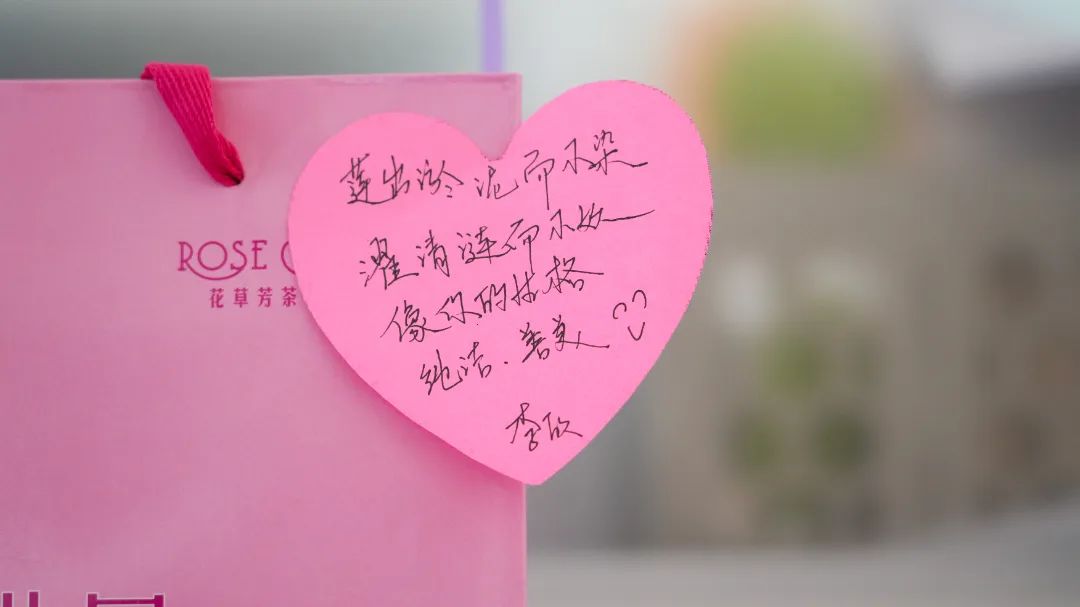 ROSE
花草芳茶
莲出淤泥而不染
濯清涟而不妖
像你的性格
纯洁.善美
李欣